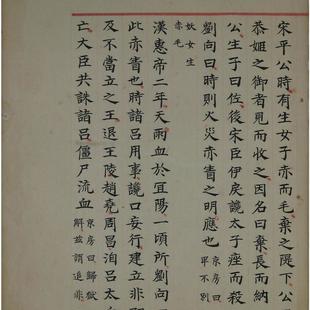 宋平公時有生女子赤而毛棄之隄下公
恭姬之御者見而收之因名曰棄長而納
公生子曰佐後宋臣伊戾讒太子痤而殺
劉向曰時則火災赤眚之明應也
京房曰
卑不別
妖女生
赤毛
漢惠帝二年天雨血於宜陽一頃所劉向
此赤眚也時諸呂用事讒口妄行建立非
及不當立之王退王陵趙堯周昌洎呂太
亡大臣共誅諸呂僵尸流血
京房曰歸獄
解茲謂追非